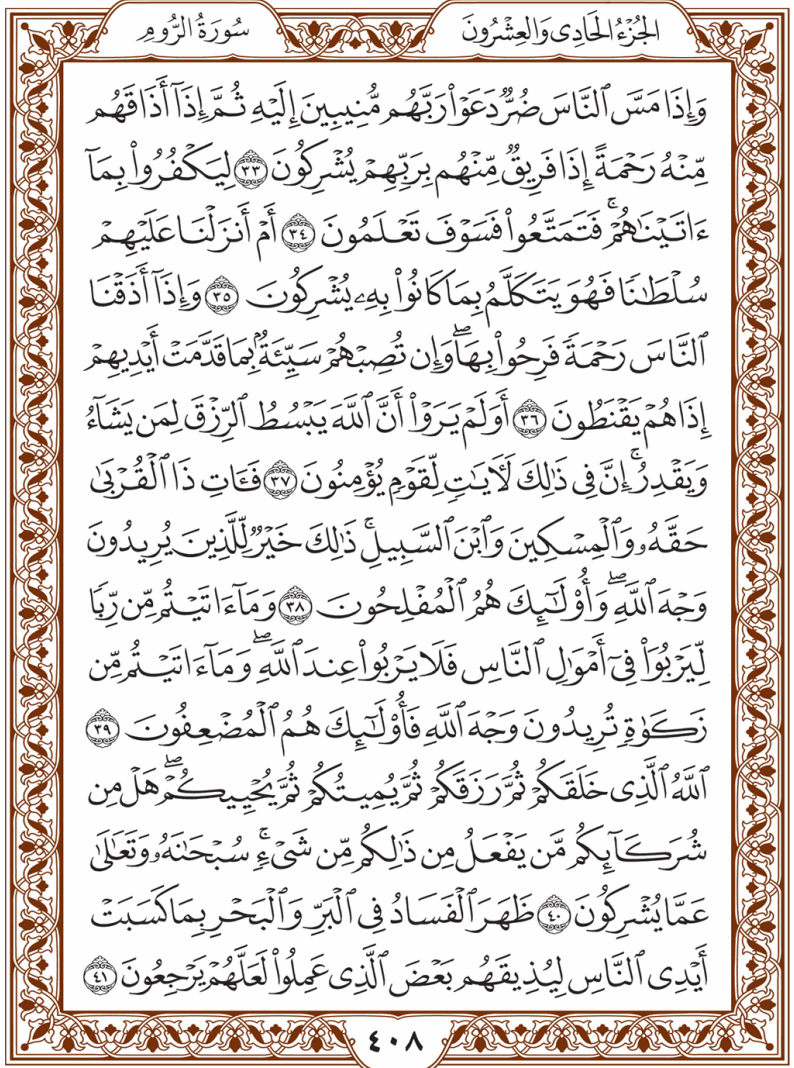 الجُزْءُ الحَادِي وَالعِشْرُونَ
سُورَةُ الرُّومِ
وَإِذَا مَسَّ ٱلنَّاسَ ضُرٌّ دَعَوْا۟ رَبَّهُم مُّنِيبِينَ إِلَيْهِ ثُمَّ إِذَآ أَذَاقَهُم
مِّنْهُ رَحْمَةً إِذَا فَرِيقٌ مِّنْهُم بِرَبِّهِمْ يُشْرِكُونَ ٣٣ لِيَكْفُرُوا۟ بِمَآ
ءَاتَيْنَٰهُمْ ۚ فَتَمَتَّعُوا۟ فَسَوْفَ تَعْلَمُونَ ٣٤ أَمْ أَنزَلْنَا عَلَيْهِمْ
سُلْطَٰنًا فَهُوَ يَتَكَلَّمُ بِمَا كَانُوا۟ بِهِۦ يُشْرِكُونَ ٣٥ وَإِذَآ أَذَقْنَا
ٱلنَّاسَ رَحْمَةً فَرِحُوا۟ بِهَا ۖ وَإِن تُصِبْهُمْ سَيِّئَةٌۢ بِمَا قَدَّمَتْ أَيْدِيهِمْ
إِذَا هُمْ يَقْنَطُونَ ٣٦ أَوَلَمْ يَرَوْا۟ أَنَّ ٱللَّهَ يَبْسُطُ ٱلرِّزْقَ لِمَن يَشَآءُ
وَيَقْدِرُ ۚ إِنَّ فِى ذَٰلِكَ لَءَايَٰتٍ لِّقَوْمٍ يُؤْمِنُونَ ٣٧ فَـَٔاتِ ذَا ٱلْقُرْبَىٰ
حَقَّهُۥ وَٱلْمِسْكِينَ وَٱبْنَ ٱلسَّبِيلِ ۚ ذَٰلِكَ خَيْرٌ لِّلَّذِينَ يُرِيدُونَ
وَجْهَ ٱللَّهِ ۖ وَأُو۟لَٰٓئِكَ هُمُ ٱلْمُفْلِحُونَ ٣٨ وَمَآ ءَاتَيْتُم مِّن رِّبًا
لِّيَرْبُوَا۟ فِىٓ أَمْوَٰلِ ٱلنَّاسِ فَلَا يَرْبُوا۟ عِندَ ٱللَّهِ ۖ وَمَآ ءَاتَيْتُم مِّن
زَكَوٰةٍ تُرِيدُونَ وَجْهَ ٱللَّهِ فَأُو۟لَٰٓئِكَ هُمُ ٱلْمُضْعِفُونَ ٣٩
ٱللَّهُ ٱلَّذِى خَلَقَكُمْ ثُمَّ رَزَقَكُمْ ثُمَّ يُمِيتُكُمْ ثُمَّ يُحْيِيكُمْ ۖ هَلْ مِن
شُرَكَآئِكُم مَّن يَفْعَلُ مِن ذَٰلِكُم مِّن شَىْءٍ ۚ سُبْحَٰنَهُۥ وَتَعَٰلَىٰ
عَمَّا يُشْرِكُونَ ٤٠ ظَهَرَ ٱلْفَسَادُ فِى ٱلْبَرِّ وَٱلْبَحْرِ بِمَا كَسَبَتْ
أَيْدِى ٱلنَّاسِ لِيُذِيقَهُم بَعْضَ ٱلَّذِى عَمِلُوا۟ لَعَلَّهُمْ يَرْجِعُونَ ٤١
٤٠٨